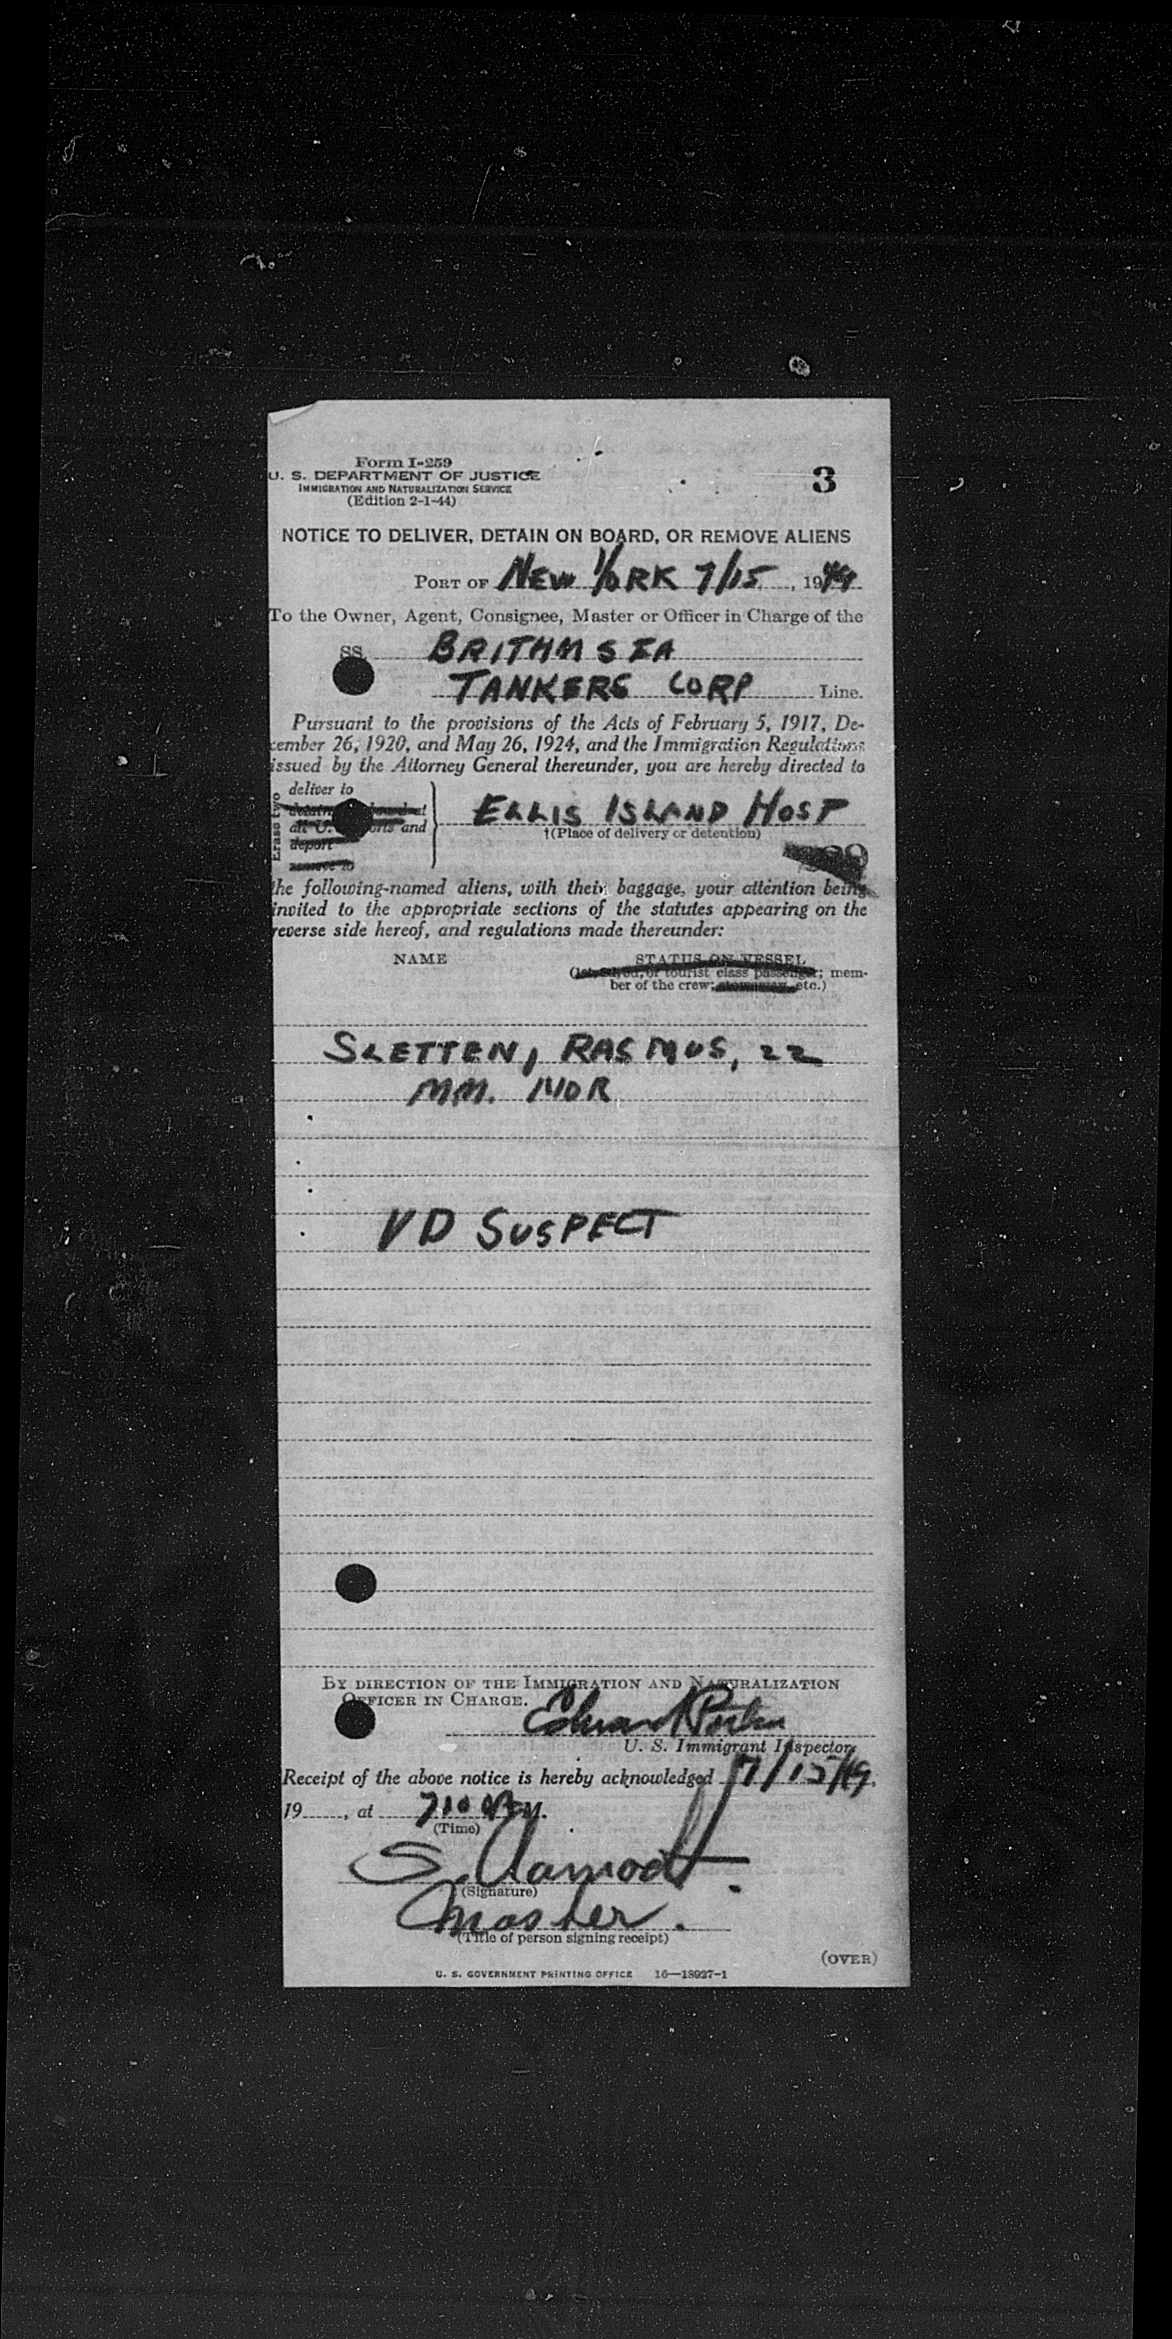 Form I-259
U. S. DEPARTMENT OF JUSTICE
IMMIGRATION AND NATURALIZATION SERVICE
(Edition 2-1-44)
3
NOTICE TO DELIVER, DETAIN ON BOARD, OR REMOVE ALIENS
PORT OF NEW YORK 7/15, 1949
To the Owner, Agent, Consignee, Master or Officer in Charge of the
SS. BRITHM SEA
TANKERS CORP Line.
Pursuant to the provisions of the Acts of February 5, 1917, De-
cember 26, 1920, and May 26, 1924, and the Immigration Regulations
issued by the Attorney General thereunder, you are hereby directed to
Erase two
deliver to
ELLIS ISLAND HOSP
all U. and
deport
remove to
†(Place of delivery or detention)
the following-named aliens, with their baggage, your attention being
invited to the appropriate sections of the statutes appearing on the
reverse side hereof, and regulations made thereunder:
NAME STATUS ON VESSEL
(1st, 2d, 3d, or tourist class passenger; mem-
ber of the crew; stowaway, etc.)
SLETTEN, RASMUS, 22
MM. NOR
VD SUSPECT
BY DIRECTION OF THE IMMIGRATION AND NATURALIZATION
OFFICER IN CHARGE.
Edward
U. S. Immigrant Inspector.
Receipt of the above notice is hereby acknowledged 7/15/49,
19, at 7 10 M.
(Time)
S. Aamodt.
(Signature)
Master.
(Title of person signing receipt)
(OVER)
U. S. GOVERNMENT PRINTING OFFICE 16—18927-1